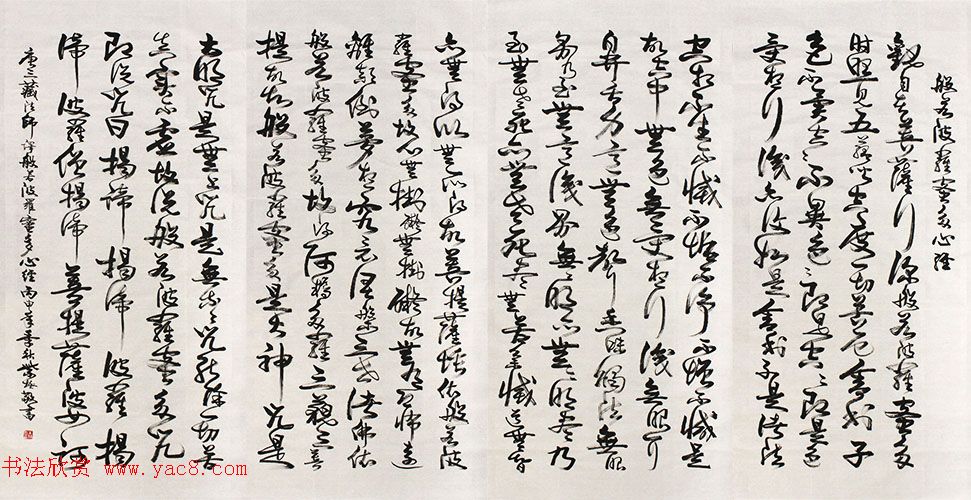 般若波羅蜜多心經
觀自在菩薩行深般若波羅蜜多
時照見五蘊皆空度一切苦厄舍利子
色不異空〻不異色〻即是空〻即是色
受想行識亦復如是舍利子是諸法
空相不生不滅不垢不淨不增不減是
故空中無色無受想行識無眼耳
鼻舌身意無色聲香味觸法無眼
界乃至無意識界無〻明亦無〻明盡乃
至無老死亦無老死盡無苦集滅道無智
亦無得以無所得故菩提薩埵依般若波
羅蜜多故心無掛礙無掛礙故無有怖遠
離顛倒夢想究竟涅槃三世諸佛依
般若波羅蜜多故得阿耨多羅三藐三菩
提故知般若波羅蜜多是大神咒是
大明咒是無上咒是無等〻咒能除一切苦
真實不虛故說般若波羅蜜多咒
即說咒曰揭諦揭諦波羅揭
諦波羅僧揭諦菩提薩婆訶
唐三藏法師譯般若波羅蜜多心經丙申年季秋敬書
书法欣赏 www.yac8.com